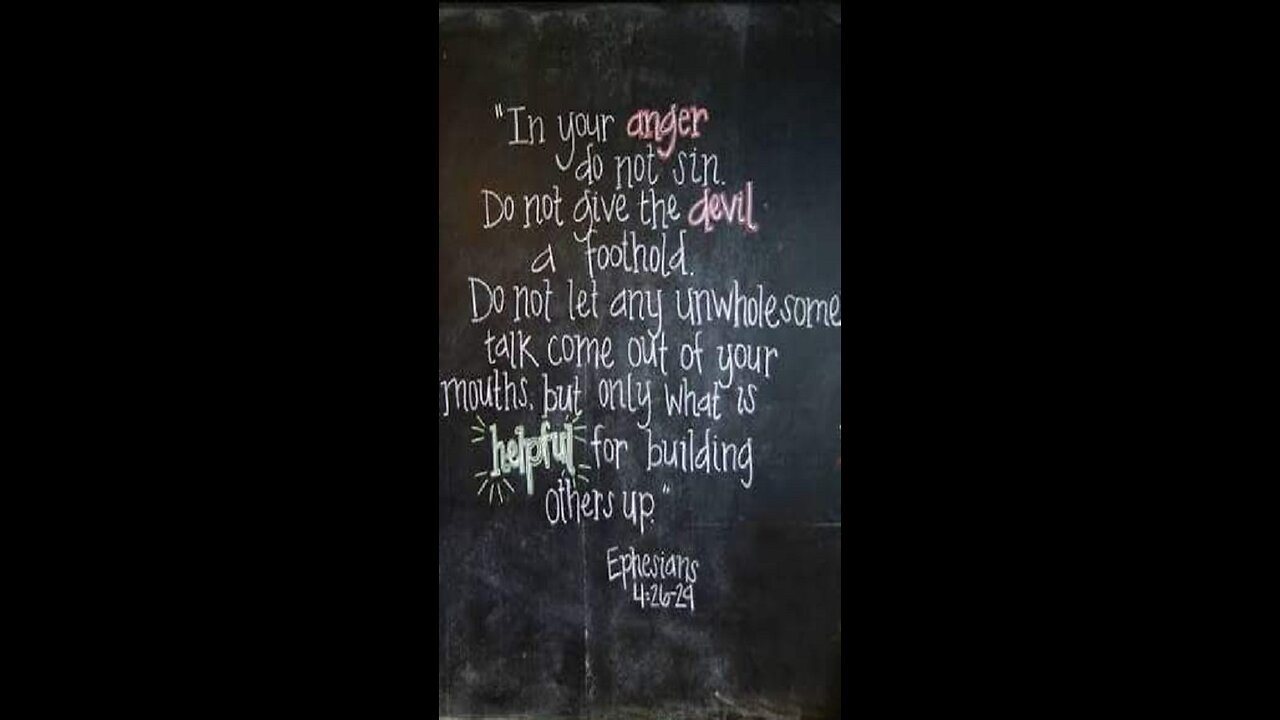 "In your anger
do not sin.
Do not give the devil
a foothold.
Do not let any unwholesome
talk come out of your
mouths, but only what is
helpful for building
others up."
Ephesians
4:26-29